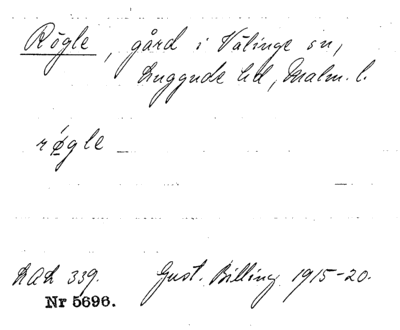 Rögle, gård i Välinge sn,
Luggude hd, Malm. l.
røgle
LAL 339. Gust. Billing 1915-20.
Nr 5696.